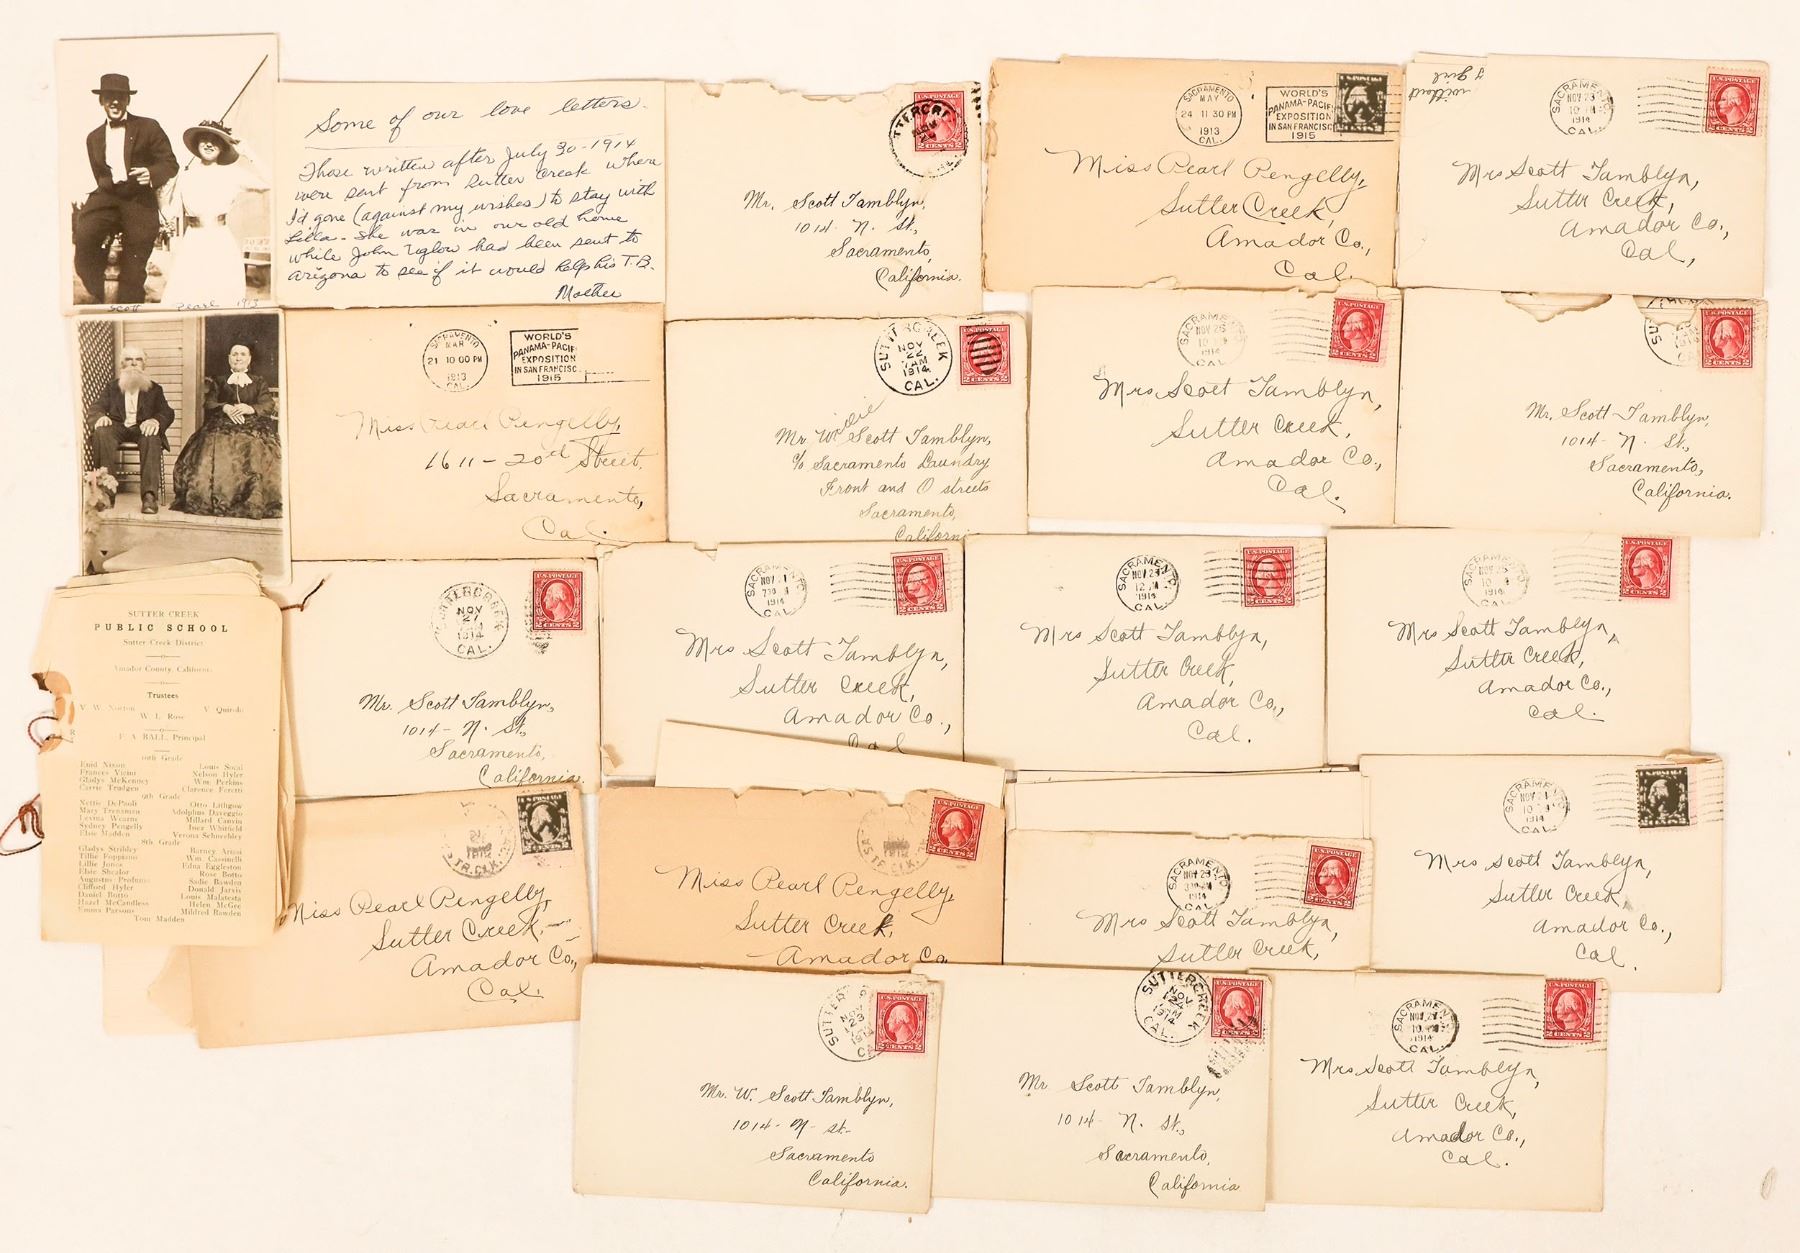 Scott Pearl 1913
Some of our love letters.
Those written after July 30-1914
were sent from Sutter Creek where
I'd gone (against my wishes) to stay with
Lilla - She was in our old home
while John Uglow had been sent to
Arizona to see if it would help his T.B.
Mother
U.S. POSTAGE
2 CENTS 2
Mr. Scott Tamblyn,
1014- N. St.,
Sacramento,
California.
SACRAMENTO
MAY
24 11 30 PM
1913
CAL.
WORLD'S
PANAMA-PACIFIC
EXPOSITION
IN SAN FRANCISCO
1915
Miss Pearl Pengelly,
Sutter Creek,
Amador Co.,
Cal.
girl
SACRAMENTO
NOV 23
1914
CAL.
Mrs Scott Tamblyn,
Sutter Creek,
Amador Co.,
Cal,
SACRAMENTO
MAR
21 10 00 PM
1913
CAL.
WORLD'S
PANAMA-PACIF
EXPOSITION
IN SAN FRANCISC
1915
Miss Pearl Pengelly,
1611-20th Street,
Sacramento,
Cal.
SUTTER CREEK
NOV
22
7 AM
1914
CAL.
U.S. POSTAGE
2 CENTS 2
Mr. Willie Scott Tamblyn,
c/o Sacramento Laundry
Front and O streets
Sacramento,
Californ
SACRAMENTO
NOV 25
1914
CAL.
Mrs Scott Tamblyn,
Sutter Creek,
Amador Co.,
Cal.
1914
Mr. Scott Tamblyn,
1014- N. St.
Sacramento,
California.
SUTTER CREEK
PUBLIC SCHOOL
Sutter Creek District
Amador County, California
Trustees
V. W. Norton V Quirolo
W. L. Rose
F A BALL, Principal
10th Grade
Enid Nixon Louis Socal
Frances Vicini Nelson Hyler
Gladys McKenney Wm. Perkins
Carrie Trudgen Clarence Feretti
9th Grade
Nettie DePaoli Otto Lithgow
Mary Trenaman Adolphus Daveggio
Levina Wearne Millard Canvin
Sydney Pengelly Inez Whitfield
Elsie Madden Verona Schnechley
8th Grade
Gladys Stribley Barney Aroni
Tillie Foppiano Wm Cassinelli
Lillie Jones Edna Eggleston
Elsie Shealor Rose Botto
Augustus Profumo Sadie Bawden
Clifford Hyler Donald Jarvis
Daniel Botto Louis Malatesta
Hazel McCandless Helen McGee
Emma Parsons Mildred Bawden
Tom Madden
NOV
27
1914
CAL.
Mr. Scott Tamblyn,
1014- N. St.,
Sacramento,
California.
SACRAMENTO
1914
CAL.
Mrs Scott Tamblyn,
Sutter Creek,
Amador Co.,
SACRAMENTO
1914
CAL.
Mrs Scott Tamblyn,
Sutter Creek,
Amador Co.,
Cal.
SACRAMENTO
1914
CAL.
Mrs Scott Tamblyn,
Sutter Creek,
Amador Co.,
Cal.
1912
TR.CLK.
Miss Pearl Pengelly,
Sutter Creek,
Amador Co.,
Cal.
1912
TR.CLK.
Miss Pearl Pengelly,
Sutter Creek,
Amador Co
SACRAMENTO
NOV 23
1914
CAL.
Mrs Scott Tamblyn,
Sutter Creek,
SACRAMENTO
NOV 24
1914
CAL.
Mrs Scott Tamblyn,
Sutter Creek,
Amador Co.,
Cal.
SUTTER
NOV
23
1914
CA
U.S. POSTAGE
2 CENTS 2
Mr. W. Scott Tamblyn,
1014- N- st-
Sacramento
California.
SUTTER CREEK
NOV
24
1914
CAL.
Mr Scott Tamblyn,
1014- N. St.,
Sacramento,
California
SACRAMENTO
1914
CAL.
Mrs Scott Tamblyn,
Sutter Creek,
Amador Co.,
Cal.